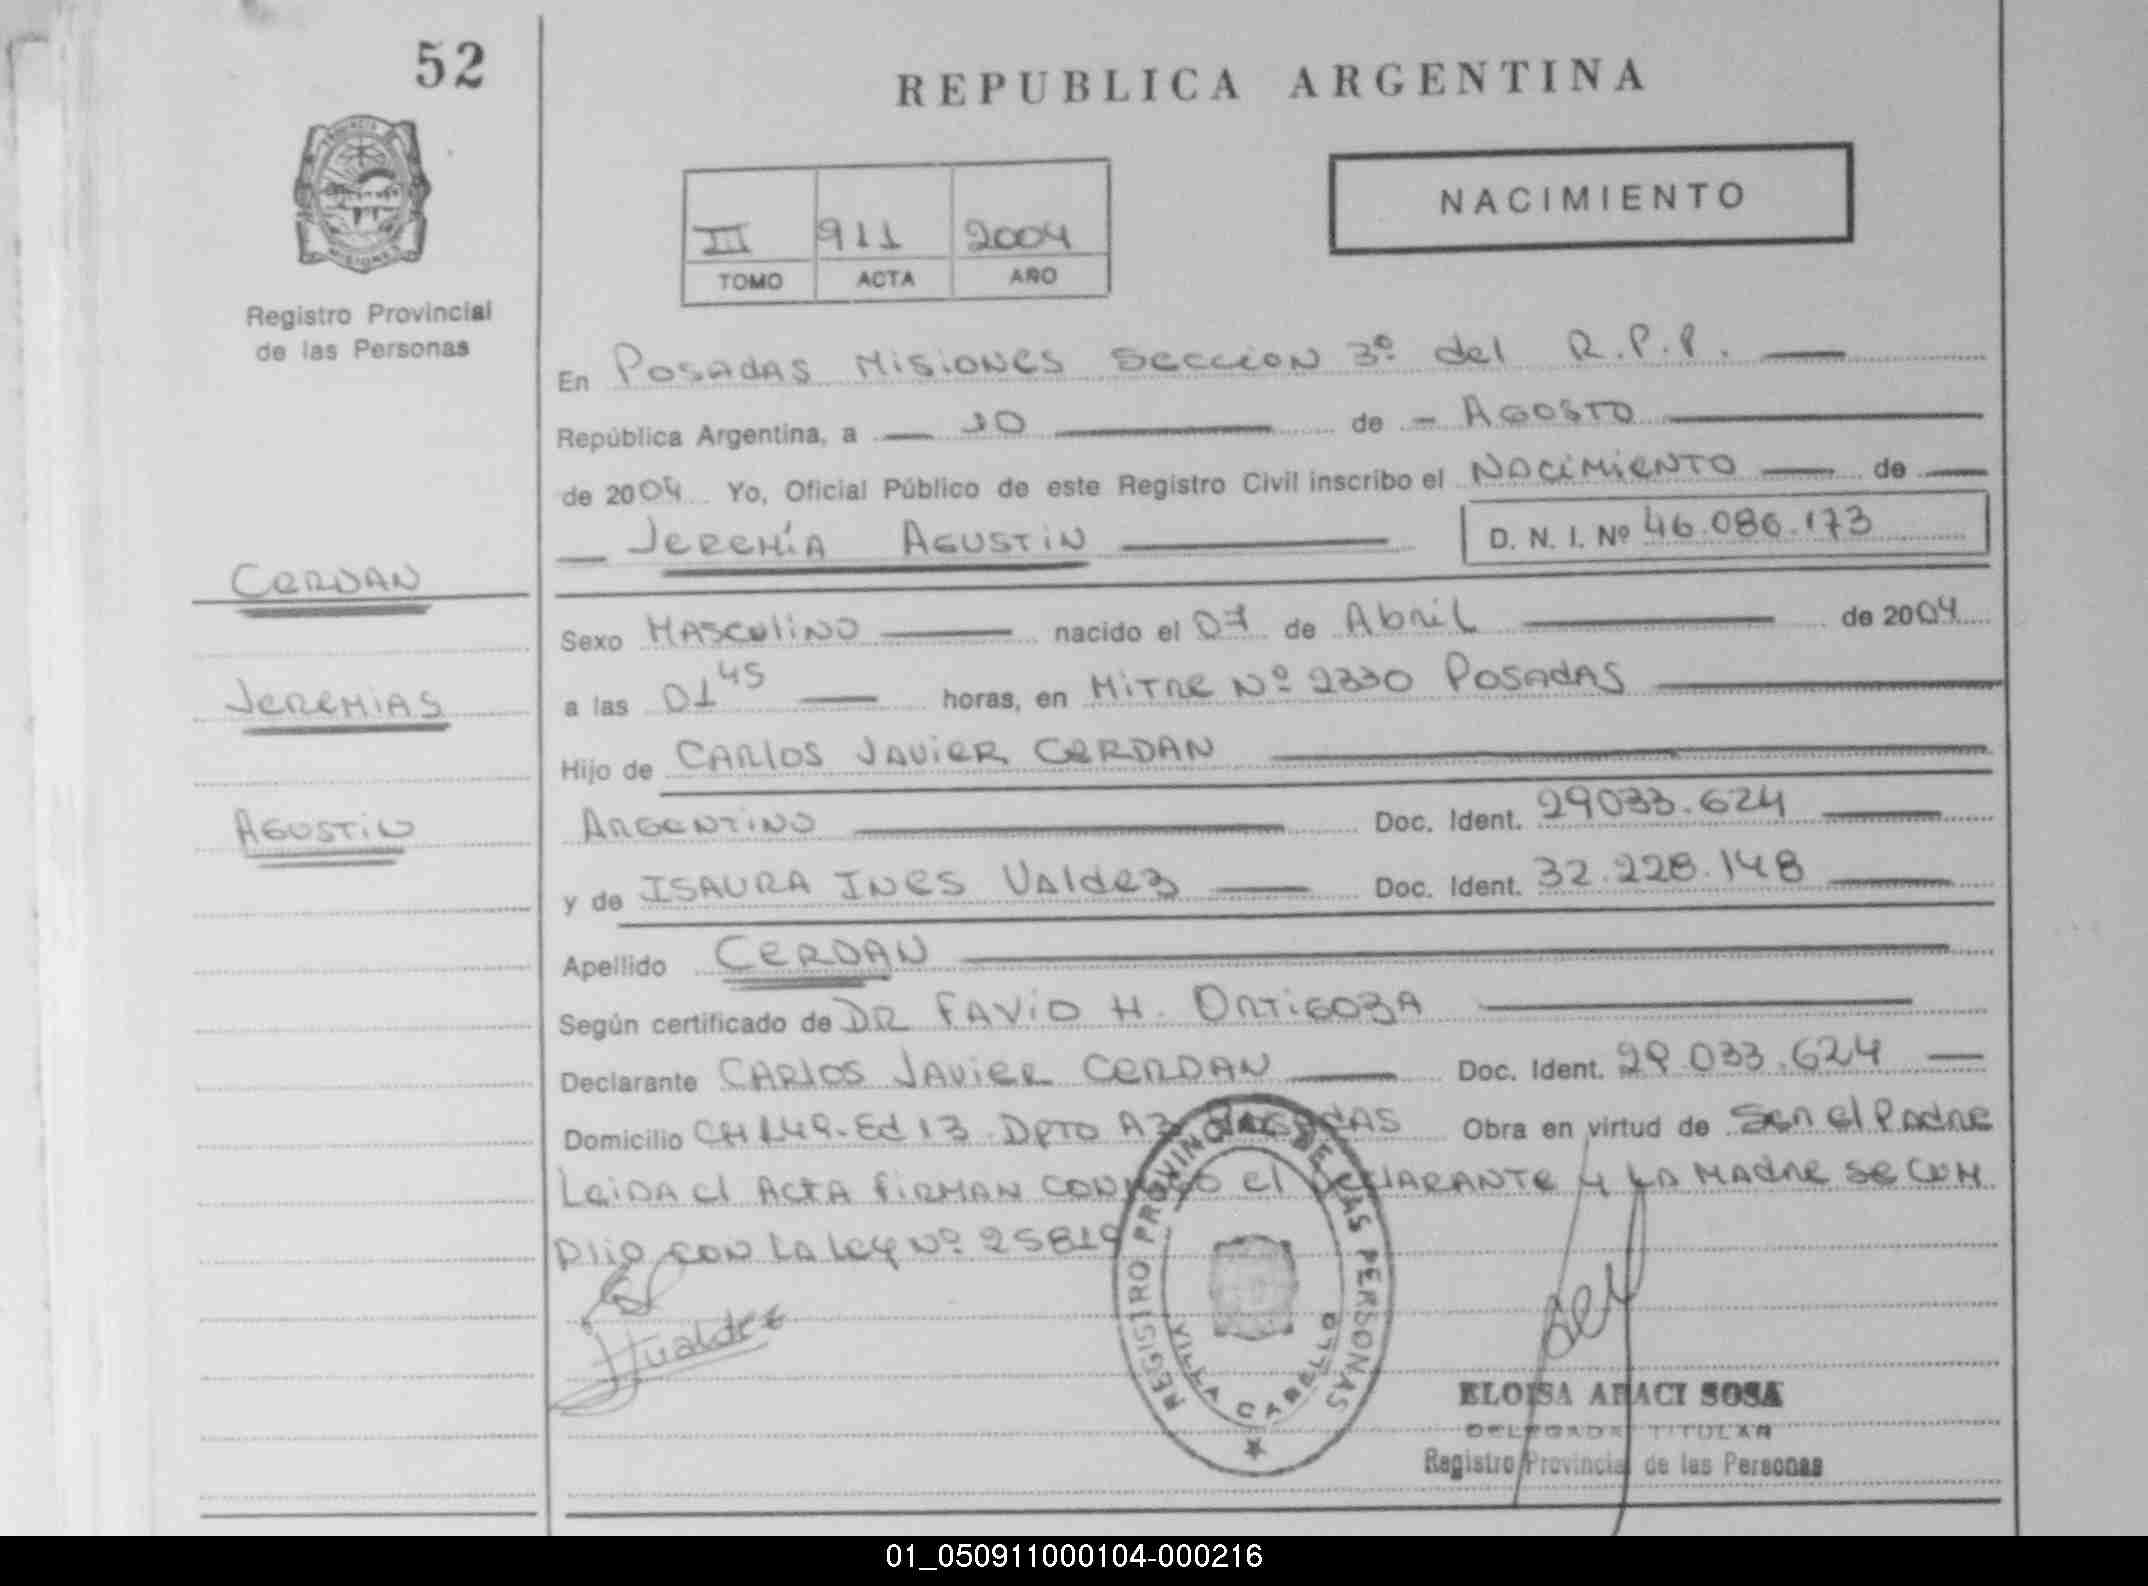 52
REPUBLICA ARGENTINA
NACIMIENTO
III 911 2004
TOMO ACTA AÑO
Registro Provincial
de las Personas
En POSADAS MISIONES SECCION 3º del R.P.P.
República Argentina, a 10 de AGOSTO
de 2004 Yo, Oficial Público de este Registro Civil inscribo el NACIMIENTO de
JEREMÍA AGUSTIN D. N. I. Nº 46.086.173
CERDAN
Sexo MASCULINO nacido el 07 de Abril de 2004
JEREMIAS
a las 01 45 horas, en MITRE Nº 2330 POSADAS
Hijo de CARLOS JAVIER CERDAN
AGUSTIN
ARGENTINO Doc. Ident. 29033.624
y de ISAURA INES VALDEZ Doc. Ident. 32.228.148
Apellido CERDAN
Según certificado de DR FAVIO H. ORTIGOZA
Declarante CARLOS JAVIER CERDAN Doc. Ident. 29.033.624
Domicilio CH 149-Ed 13 DPTO A3 POSADAS Obra en virtud de SER el PADRE
LEIDA el ACTA FIRMAN CONMIGO el DECLARANTE y LA MADRE SE CUM
PLIO CON LA LEY Nº 25819
Valdez
REGISTRO PROVINCIAL DE LAS PERSONAS
VILLA CABELLO
ELOISA ARACI SOSA
DELEGADA TITULAR
Registro Provincial de las Personas
01_050911000104-000216